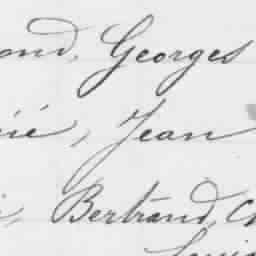 ond, Georges
ié, Jean
Bertrand, Ch
Louis